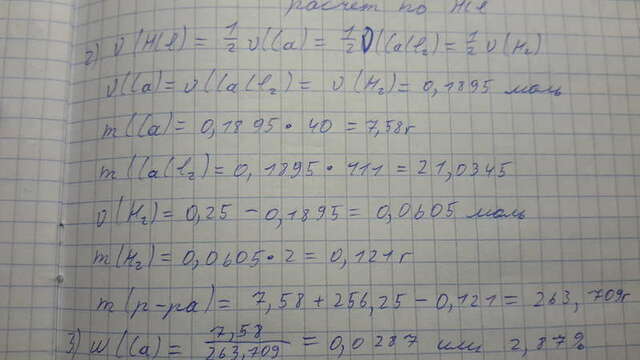 расчет по HCl
2) ν(HCl) = 1/2 ν(Ca) = 1/2 ν(CaCl₂) = 1/2 ν(H₂)
ν(Ca) = ν(CaCl₂) = ν(H₂) = 0,1895 моль
m(Ca) = 0,1895 · 40 = 7,58 г
m(CaCl₂) = 0,1895 · 111 = 21,0345
ν(H₂) = 0,25 – 0,1895 = 0,0605 моль
m(H₂) = 0,0605 · 2 = 0,121 г
m(р-ра) = 7,58 + 256,25 – 0,121 = 263,709 г
3) w(Ca) = 7,58/263,709 = 0,0287 или 2,87%